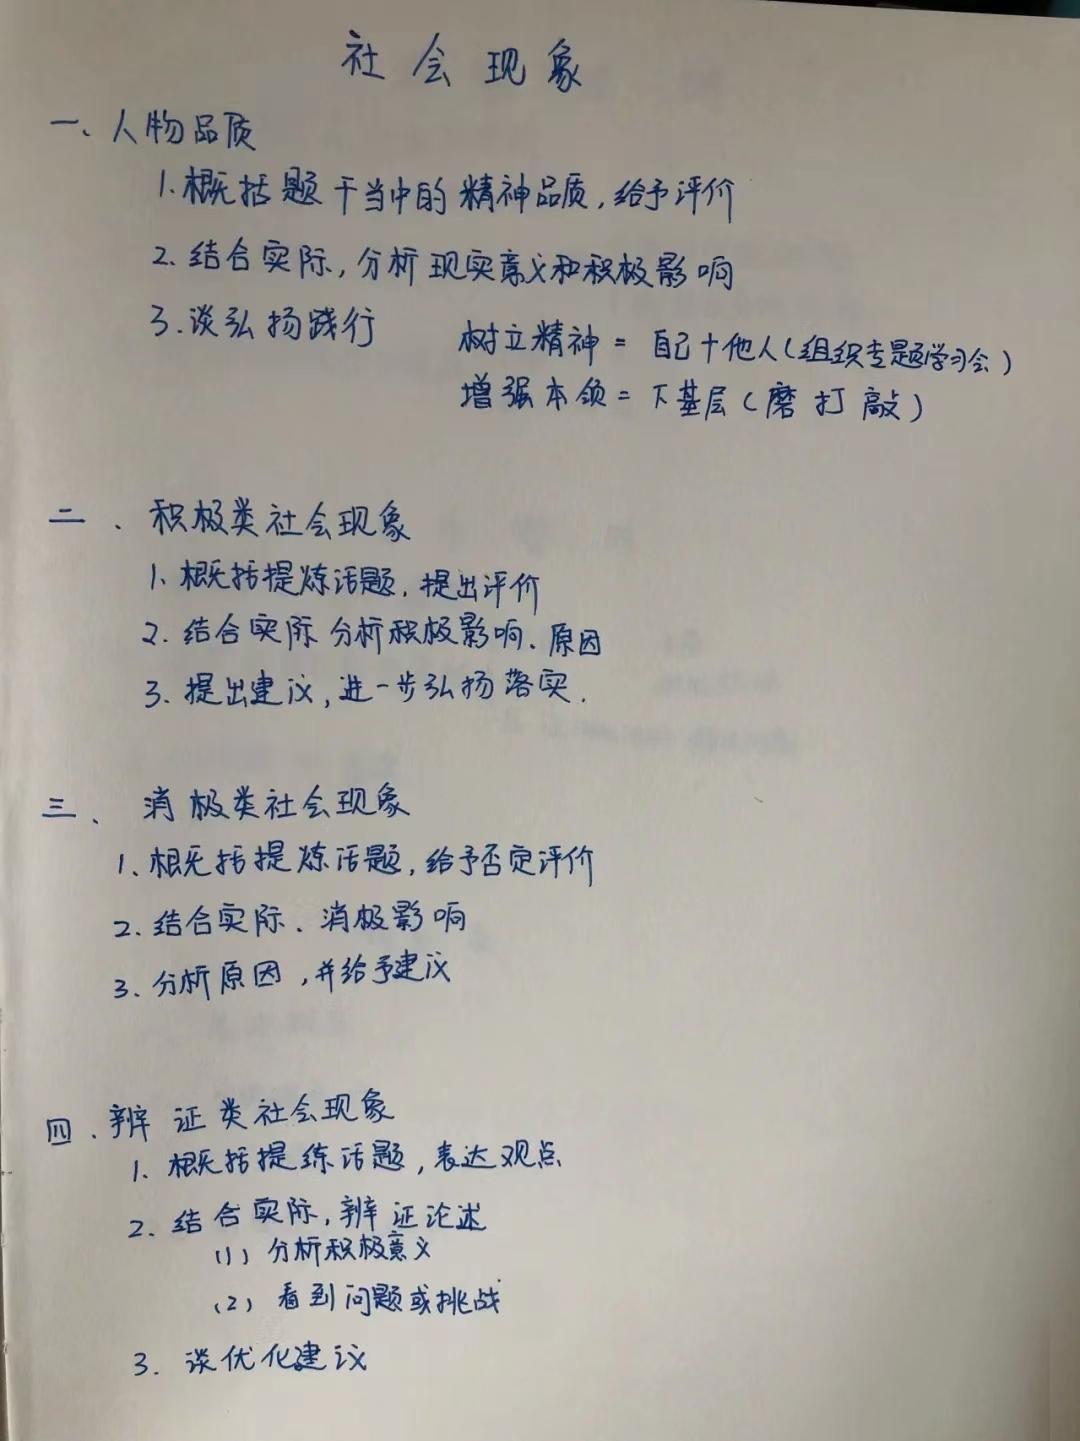 社会现象
一、人物品质
1.概括题干当中的精神品质,给予评价
2.结合实际,分析现实意义和积极影响
3.谈弘扬践行
树立精神=自己+他人(组织专题学习会)
增强本领=下基层(磨打敲)
二、积极类社会现象
1、概括提炼话题,提出评价
2.结合实际分析积极影响、原因
3.提出建议,进一步弘扬落实.
三、消极类社会现象
1、概括提炼话题,给予否定评价
2.结合实际、消极影响
3.分析原因,并给予建议
四、辨证类社会现象
1、概括提练话题,表达观点
2.结合实际,辨证论述
(1)分析积极意义
(2)看到问题或挑战
3.谈优化建议